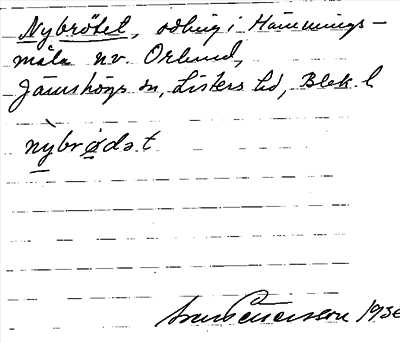 Nybrötet, odling i Hämmings-
måla nv. Orlund,
Jämshögs sn, Listers hd, Blek. l
nỳbrødət
Petersson 193